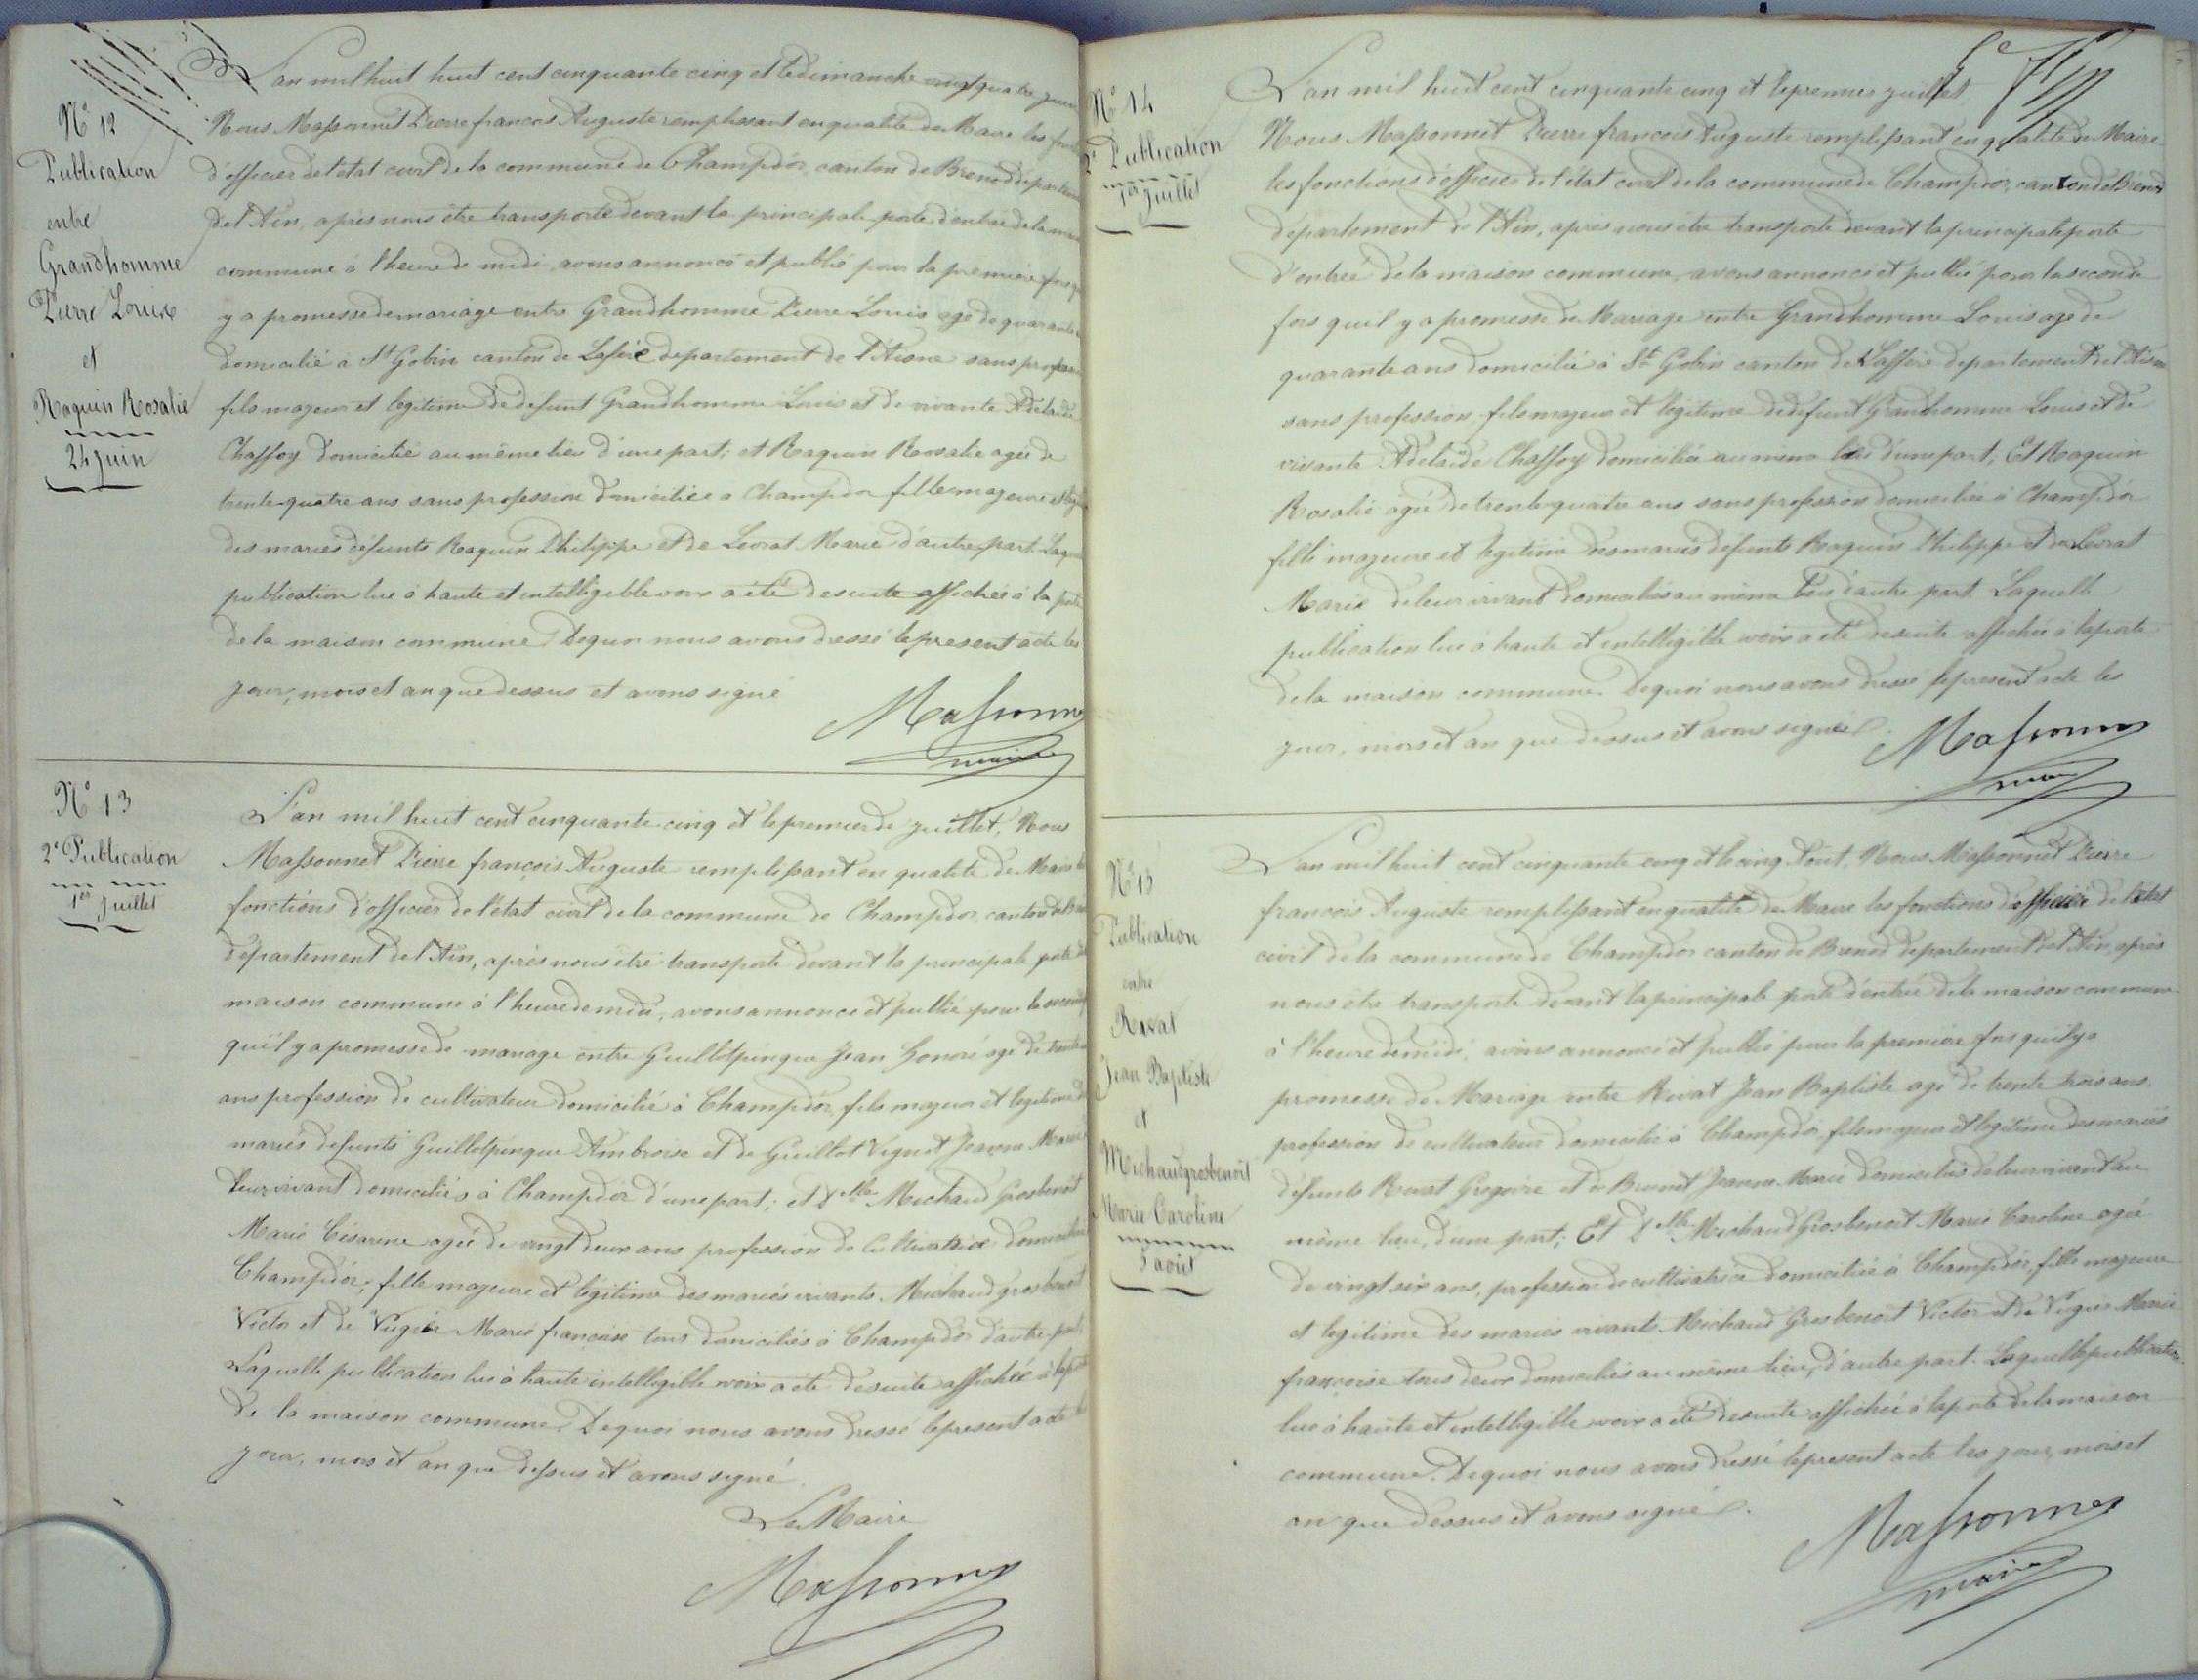 N° 12
Publication
entre
Grandhomme
Pierre Louis
et
Raquin Rosalie
24 Juin
L'an mil huit huit cent cinquante cinq et le dimanche vingt quatre juin
Nous Massonnet Pierre francois Auguste remplissant en qualité de Maire les
d'officier de l'état civil de la commune de Champdor, canton de Brenod département
de l'Ain, après nous être transporté devant la principale porte d'entrée de la
commune à l'heure de midi, avons annoncé et publié pour la première fois
y a promesse de mariage entre Grandhomme Pierre Louis agé de quarante
domicilié à St Gobin canton de Lafère département de l'Aisne sans profession
fils majeur et legitime de defunt Grandhomme Louis et de vivante Adelaide
Chaffoy domicilié au même lieu d'une part; et Raquin Rosalie agée de
trente-quatre ans sans profession domiciliée a Champdor fille majeure et
des mariés défunts Raquin Philippe et de Levrat Marie d'autre part.
publication lue à haute et intelligible voix a été de suite affichée à la porte
de la maison commune Dequoi nous avons dressé le present acte les
jour, mois et an que dessus et avons signé
Massonnet
maire
N° 13
2e Publication
1er Juillet
L'an mil huit cent cinquante-cinq et le premier de juillet, Nous
Massonnet Pierre françois Auguste remplissant en qualité de Maire
fonctions d'officier de l'état civil de la commune de Champdor, canton de
département de l'Ain, après nous être transporté devant la principale porte
maison commune à l'heure de midi, avons annoncé et publié pour la seconde
qu'il y a promesse de mariage entre Guillotpingue Jean Honoré agé de trente
ans profession de cultivateur domicilié à Champdor, fils majeur et legitime
mariés defunts Guillotpingue Ambroise et de Guillot Vignot Jeanne Marie
leur vivant domiciliés à Champdor d'une part; et Dlle Michaud Grosbenoit
Marie Césarine agée de vingt deux ans profession de Cultivatrice domiciliée
Champdor, fille majeure et légitime des mariés vivants Michaud grosbenoit
Victor et de Vugier Marie françoise tous domiciliés à Champdor d'autre part
Laquelle publication lue à haute intelligible voix a été de suite affichée à la porte
de la maison commune Dequoi nous avons dressé le present acte
jour, mois et an que dessus et avons signé.
Le Maire
Massonnet
N° 14
2e Publication
1er Juillet
L'an mil huit cent cinquante cinq et le premier juillet,
Nous Massonnet Pierre francois Auguste remplissant en qualité de Maire
les fonctions d'officier de l'état civil de la commune de Champdor, canton de Brenod
département de l'Ain, après nous être transporté devant la principale porte
d'entrée de la maison commune, avons annoncé et publié pour la seconde
fois qu'il y a promesse de Mariage entre Grandhomme Louis age de
quarante ans domicilié à St Gobin canton de Laffère département de l'Aisne
sans profession, fils majeur et legitime de defunt Grandhomme Louis et de
vivante Adelaïde Chaffoy domiciliée au même lieu d'une part; Et Raquin
Rosalie agée de trente quatre ans sans profession domiciliée à Champdor
fille majeure et legitime des mariés défunts Raquin Philippe et de Levrat
Marie de leur vivant domiciliés au même lieu d'autre part. Laquelle
publication lue à haute et intelligible voix a été de suite affichée à la porte
de la maison commune. Dequoi nous avons dressé le present acte les
jour, mois et an que dessus et avons signé
Massonnet
maire
N° 15
Publication
entre
Rivat
Jean Baptiste
et
Michaudgrosbenoit
Marie Caroline
5 août
L'an mil huit cent cinquante cinq et le cinq Août, Nous Massonnet Pierre
francois Auguste remplissant en qualité de Maire les fonctions d'officier de l'état
civil de la commune de Champdor canton de Brenod département de l'Ain, après
nous être transporté devant la principale porte d'entrée de la maison commune
à l'heure de midi, avons annoncé et publié pour la premiere fois qu'il y a
promesse de Mariage entre Rivat Jean Baptiste agé de trente trois ans
profession de cultivateur domicilié à Champdor, fils majeur et légitime des mariés
défunts Rivat Gregoire et de Brunet Jeanne Marie domiciliés de leur vivant au
même lieu, d'une part; Et Dlle Michaud Grosbenoit Marie Caroline agée
de vingt six ans, profession de cultivatrice domiciliée à Champdor, fille majeure
et legitime des mariés vivants Michaud Grosbenoit Victor et de Vugier Marie
françoise tous deux domiciliés au même lieu, d'autre part. Laquelle publication
lue à haute et intelligible voix a été de suite affichée à la porte de la maison
commune. Dequoi nous avons dressé le present acte les jour, mois et
an que dessus et avons signé.
Massonnet
maire